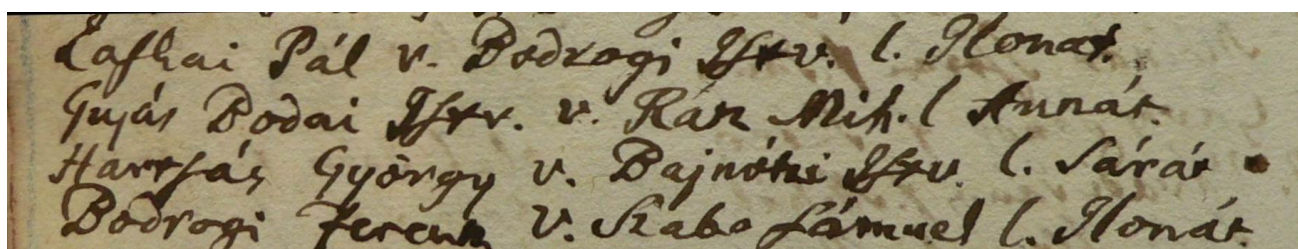 Laskai Pál v. Bodrogi Istv. l. Ilonát.
Gujás Bodai Istv. v. Rácz Mih. l Annát.
Harsás György v. Bajnótzi Istv. l. Sárát
Bodrogi Ferentz v. Szabo Sámuel l. Ilonát